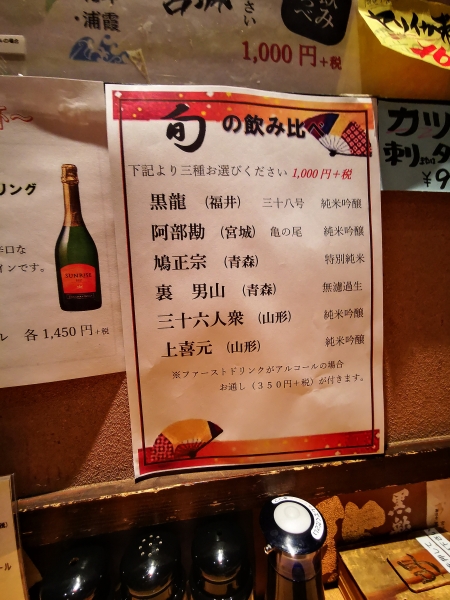 ・浦霞
さい
飲み
1,000円+税
旬の飲み比べ
下記より三種お選びください 1,000円+税
黒龍 (福井) 三十八号 純米吟醸
阿部勘 (宮城) 亀の尾 純米吟醸
鳩正宗 (青森) 特別純米
裏 男山 (青森) 無濾過生
三十六人衆 (山形) 純米吟醸
上喜元 (山形) 純米吟醸
※ファーストドリンクがアルコールの場合
お通し(350円+税)が付きます。
リング
辛口な
インです。
ル 各1,450円+税
カツ
刺
¥9
黒龍